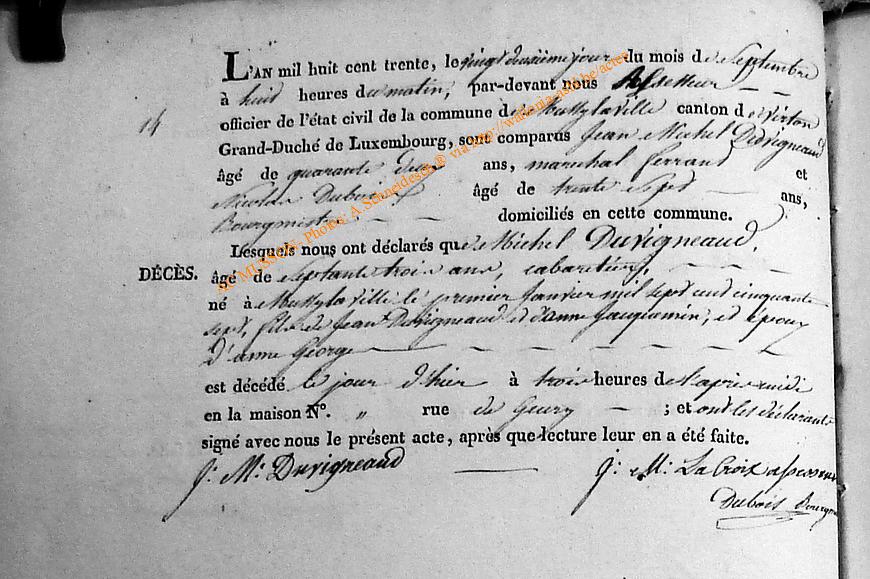 L'AN mil huit cent trente, le vingt deuxième jour du mois de Septembre
à huit heures du matin, par-devant nous Assesseur
officier de l'état civil de la commune de Mussylaville canton de virton
14
Grand-Duché de Luxembourg, sont comparus Jean Michel Duvigneaud
âgé de quarante deux ans, marechal ferrand et
Nicolas Dubois âgé de trente Sept ans,
Bourgmestre domiciliés en cette commune.
Lesquels nous ont déclarés que Michel Duvigneaud,
DÉCÈS. âgé de Septante trois ans, cabaretier,
né à Mussylaville le premier Janvier mil sept cent cinquante
sept, fils de Jean Duvigneaud et d'anne Jauquemin, et époux
D'anne George
est décédé le jour d'hier à trois heures de l'après midi
en la maison N°. " rue de Geury ; et ont les déclarants
signé avec nous le présent acte, après que lecture leur en a été faite.
J: M: Duvigneaud J: M: LaCroix assesseur
Dubois Bourgm
MUSSON - Photos: A.Schneidesch ® via http://wallonia-asbl.be/actes